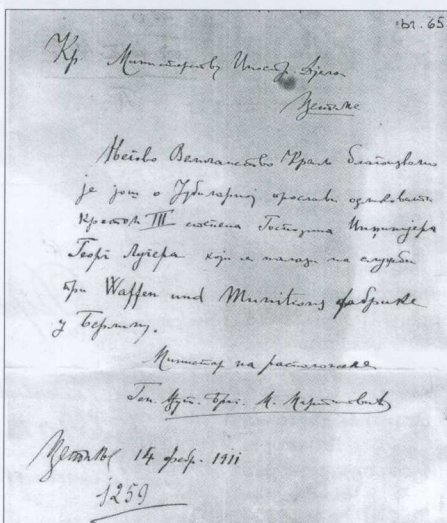 br. 65
Кр. Министарству Иностр. Дјела
Цетиње
Његово Величанство Краљ благоизволио
је још о Јубиларној прослави одликовати
Крстом III степена Господина Инџинијера
Георг Лугера који се налази на служби
при Waffen und Munitions фабрике
у Берлину.
Министар на расположење
Ген. М. Мартиновић
Цетиње 14 фебр. 1911
1259